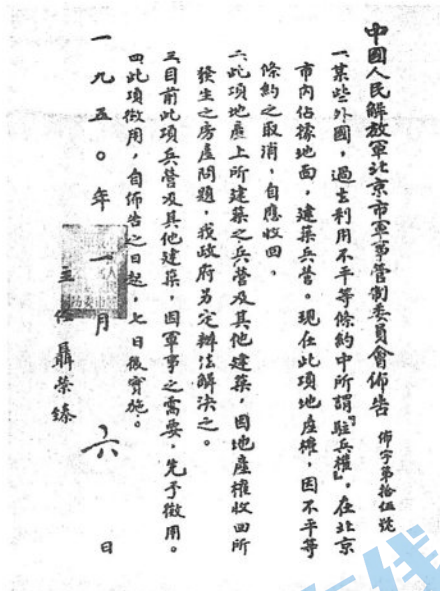 中國人民解放軍北京市軍事管制委員會佈告 佈字第拾伍號
一、某些外國，過去利用不平等條約中所謂『駐兵權』。在北京
市內佔據地面，建築兵營。現在此項地產權，因不平等
條約之取消，自應收回。
二、此項地產上所建築之兵營及其他建築，因地產權收回所
發生之房產問題，我政府另定辦法解決之。
三、目前此項兵營及其他建築，因軍事之需要，先予徵用。
四、此項徵用，自佈告之日起，七日後實施。
主任 聶榮臻
一九五〇年一月六日
在线